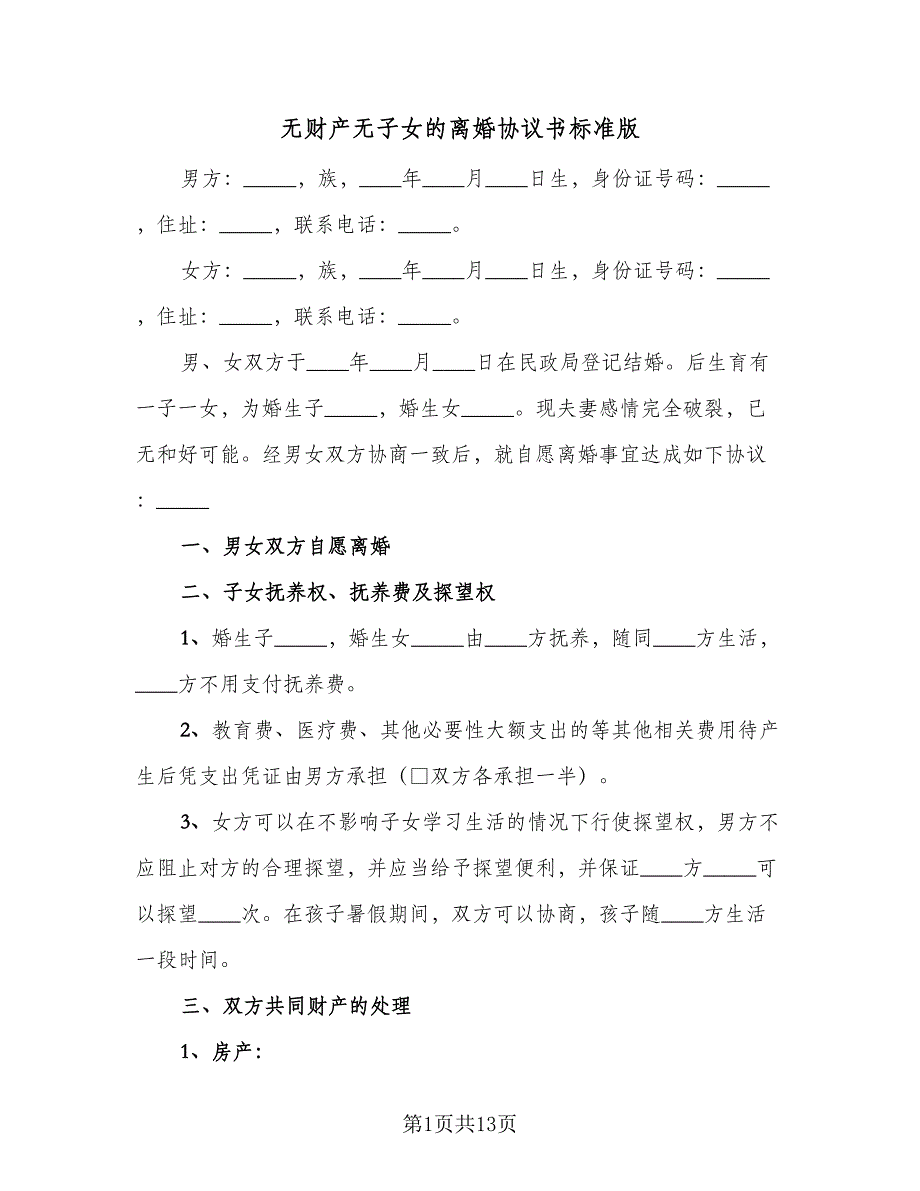 无财产无子女的离婚协议书标准版
男方：_____，族，____年____月____日生，身份证号码：_____
，住址：_____，联系电话：_____。
女方：_____，族，____年____月____日生，身份证号码：_____
，住址：_____，联系电话：_____。
男、女双方于____年____月____日在民政局登记结婚。后生育有
一子一女，为婚生子_____，婚生女_____。现夫妻感情完全破裂，已
无和好可能。经男女双方协商一致后，就自愿离婚事宜达成如下协议
：_____
一、男女双方自愿离婚
二、子女抚养权、抚养费及探望权
1、婚生子_____，婚生女_____由____方抚养，随同____方生活，
____方不用支付抚养费。
2、教育费、医疗费、其他必要性大额支出的等其他相关费用待产
生后凭支出凭证由男方承担（□双方各承担一半）。
3、女方可以在不影响子女学习生活的情况下行使探望权，男方不
应阻止对方的合理探望，并应当给予探望便利，并保证____方_____可
以探望____次。在孩子暑假期间，双方可以协商，孩子随____方生活
一段时间。
三、双方共同财产的处理
1、房产：
第1页共13页